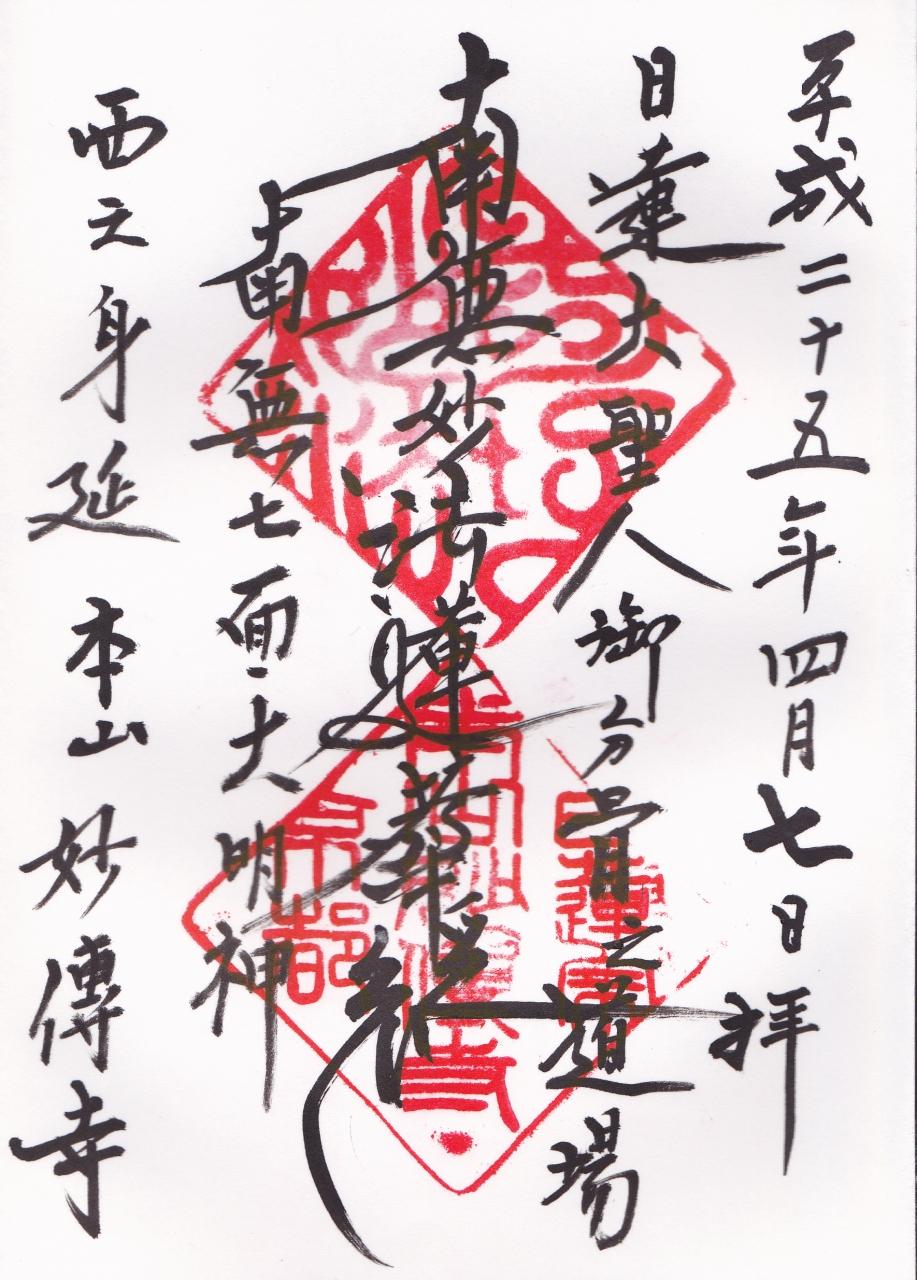 平成二十五年四月七日拝
日蓮大聖人御分骨之道場
南無妙法蓮華経
南無七面大明神
西之身延 本山 妙傳寺
日蓮宗
本山妙傳寺
京都